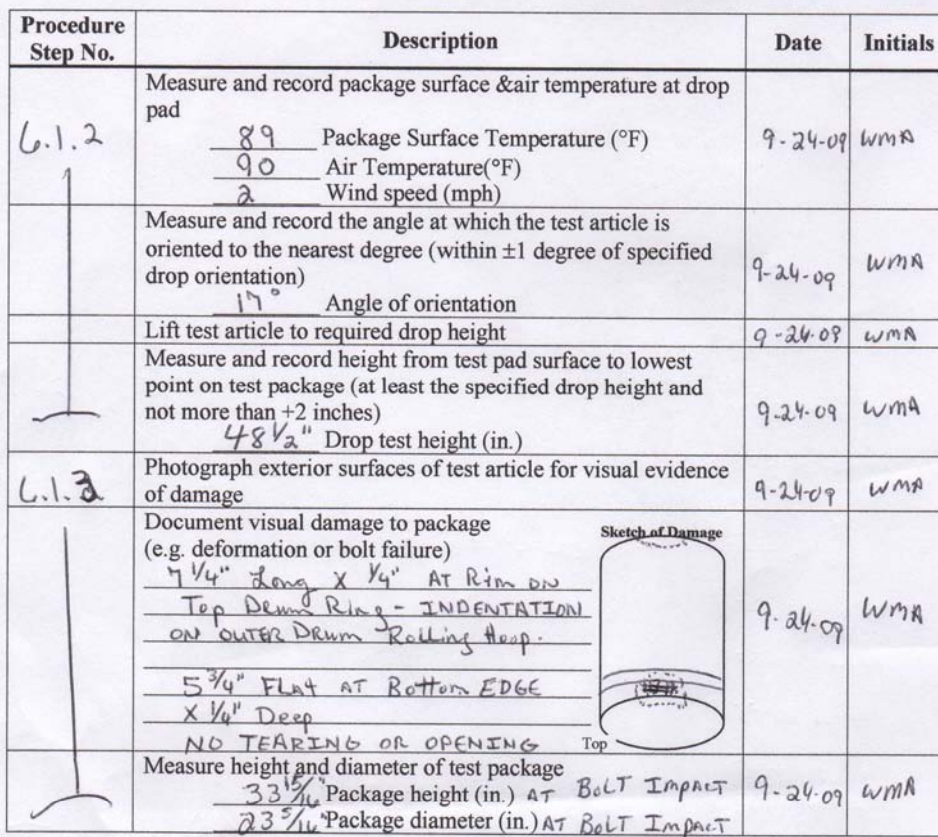 Procedure Step No. Description Date Initials
Measure and record package surface &air temperature at drop
pad
6.1.2 89 Package Surface Temperature (°F) 9-24-09 WMA
90 Air Temperature(°F)
2 Wind speed (mph)
Measure and record the angle at which the test article is
oriented to the nearest degree (within ±1 degree of specified
drop orientation) 9-24-09 WMA
17° Angle of orientation
Lift test article to required drop height 9-24-09 WMA
Measure and record height from test pad surface to lowest
point on test package (at least the specified drop height and
not more than +2 inches) 9-24-09 WMA
48 1/2" Drop test height (in.)
6.1.3 Photograph exterior surfaces of test article for visual evidence
of damage 9-24-09 WMA
Document visual damage to package
(e.g. deformation or bolt failure) Sketch of Damage
7 1/4" Long X 1/4" AT Rim ON
Top Drum Ring - INDENTATION 9-24-09 WMA
ON OUTER DRUM Rolling Hoop.
5 3/4" FLAT AT Bottom EDGE
X 1/4" Deep
NO TEARING OR OPENING Top
Measure height and diameter of test package
33 15/16" Package height (in.) AT BOLT IMPACT 9-24-09 WMA
23 5/16" Package diameter (in.) AT BOLT IMPACT